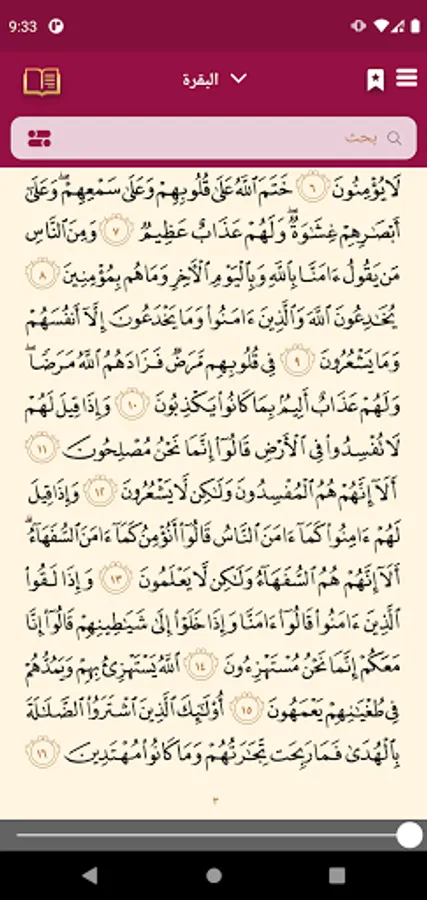 9:33
البقرة
بحث
لَا يُؤْمِنُونَ ٦ خَتَمَ ٱللَّهُ عَلَىٰ قُلُوبِهِمْ وَعَلَىٰ سَمْعِهِمْ ۖ وَعَلَىٰٓ
أَبْصَٰرِهِمْ غِشَٰوَةٌ ۖ وَلَهُمْ عَذَابٌ عَظِيمٌ ٧ وَمِنَ ٱلنَّاسِ
مَن يَقُولُ ءَامَنَّا بِٱللَّهِ وَبِٱلْيَوْمِ ٱلْأَخِرِ وَمَا هُم بِمُؤْمِنِينَ ٨
يُخَٰدِعُونَ ٱللَّهَ وَٱلَّذِينَ ءَامَنُوا۟ وَمَا يَخْدَعُونَ إِلَّآ أَنفُسَهُمْ
وَمَا يَشْعُرُونَ ٩ فِى قُلُوبِهِم مَّرَضٌ فَزَادَهُمُ ٱللَّهُ مَرَضًا ۖ
وَلَهُمْ عَذَابٌ أَلِيمٌۢ بِمَا كَانُوا۟ يَكْذِبُونَ ١٠ وَإِذَا قِيلَ لَهُمْ
لَا تُفْسِدُوا۟ فِى ٱلْأَرْضِ قَالُوٓا۟ إِنَّمَا نَحْنُ مُصْلِحُونَ ١١
أَلَآ إِنَّهُمْ هُمُ ٱلْمُفْسِدُونَ وَلَٰكِن لَّا يَشْعُرُونَ ١٢ وَإِذَا قِيلَ
لَهُمْ ءَامِنُوا۟ كَمَآ ءَامَنَ ٱلنَّاسُ قَالُوٓا۟ أَنُؤْمِنُ كَمَآ ءَامَنَ ٱلسُّفَهَآءُ ۗ
أَلَآ إِنَّهُمْ هُمُ ٱلسُّفَهَآءُ وَلَٰكِن لَّا يَعْلَمُونَ ١٣ وَإِذَا لَقُوا۟
ٱلَّذِينَ ءَامَنُوا۟ قَالُوٓا۟ ءَامَنَّا وَإِذَا خَلَوْا۟ إِلَىٰ شَيَٰطِينِهِمْ قَالُوٓا۟ إِنَّا
مَعَكُمْ إِنَّمَا نَحْنُ مُسْتَهْزِءُونَ ١٤ ٱللَّهُ يَسْتَهْزِئُ بِهِمْ وَيَمُدُّهُمْ
فِى طُغْيَٰنِهِمْ يَعْمَهُونَ ١٥ أُو۟لَٰٓئِكَ ٱلَّذِينَ ٱشْتَرَوُا۟ ٱلضَّلَٰلَةَ
بِٱلْهُدَىٰ فَمَا رَبِحَت تِّجَٰرَتُهُمْ وَمَا كَانُوا۟ مُهْتَدِينَ ١٦
٣